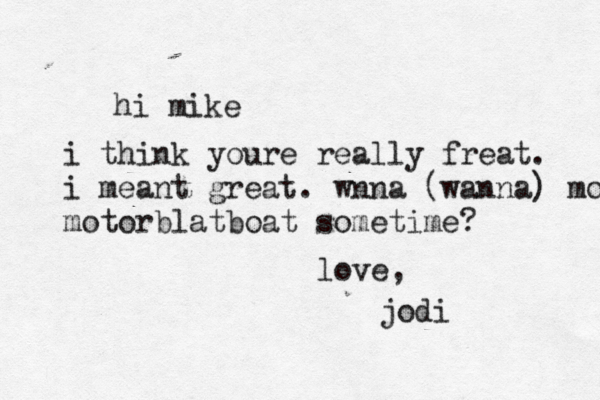 hi mike
i think youre really freat.
i meant great. wnna (wanna) mo
motorblatboat sometime?
love,
jodi